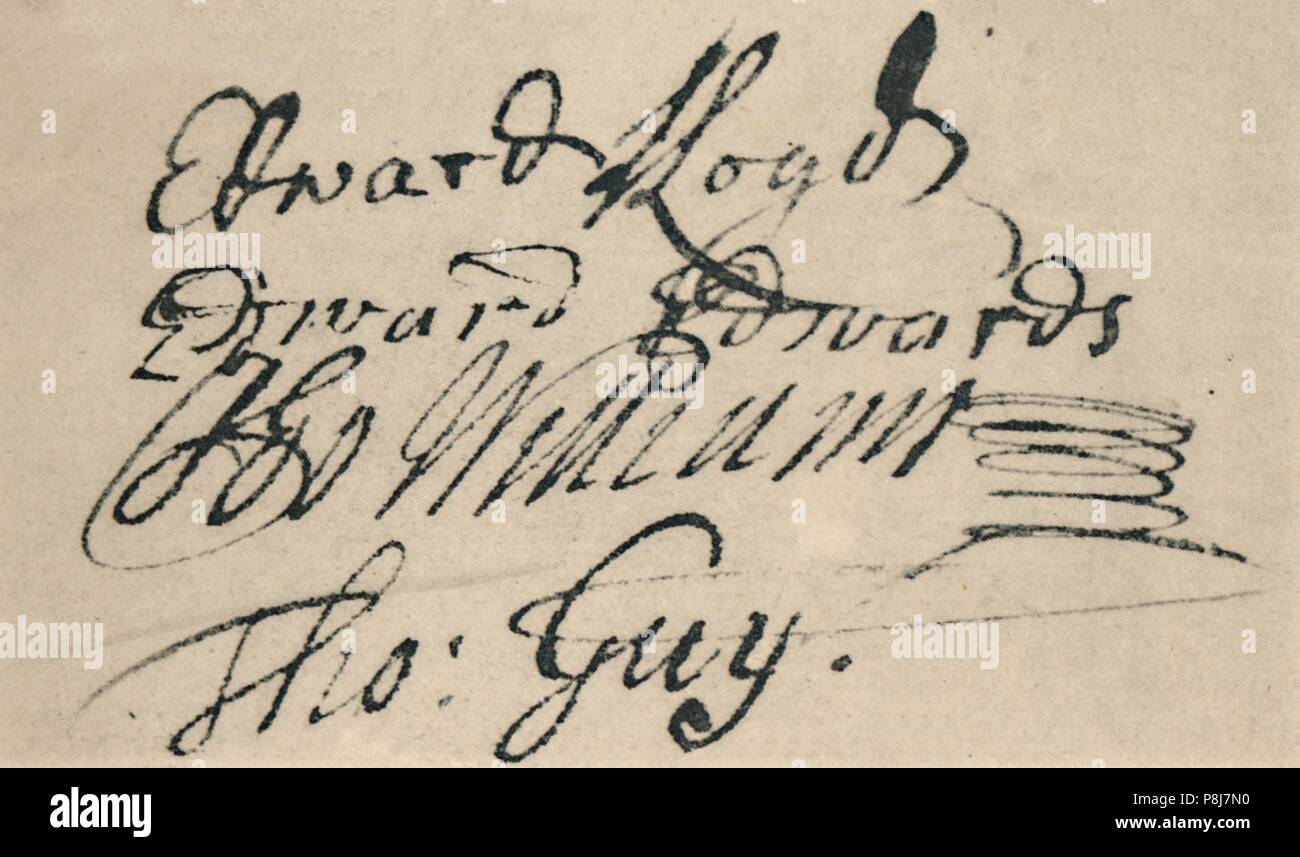 Edward Lloyd
Edward Edwards
Tho Williams
Tho: Guy.
alamy
alamy
alamy
alamy
alamy
alamy
Image ID: P8J7N0
www.alamy.com